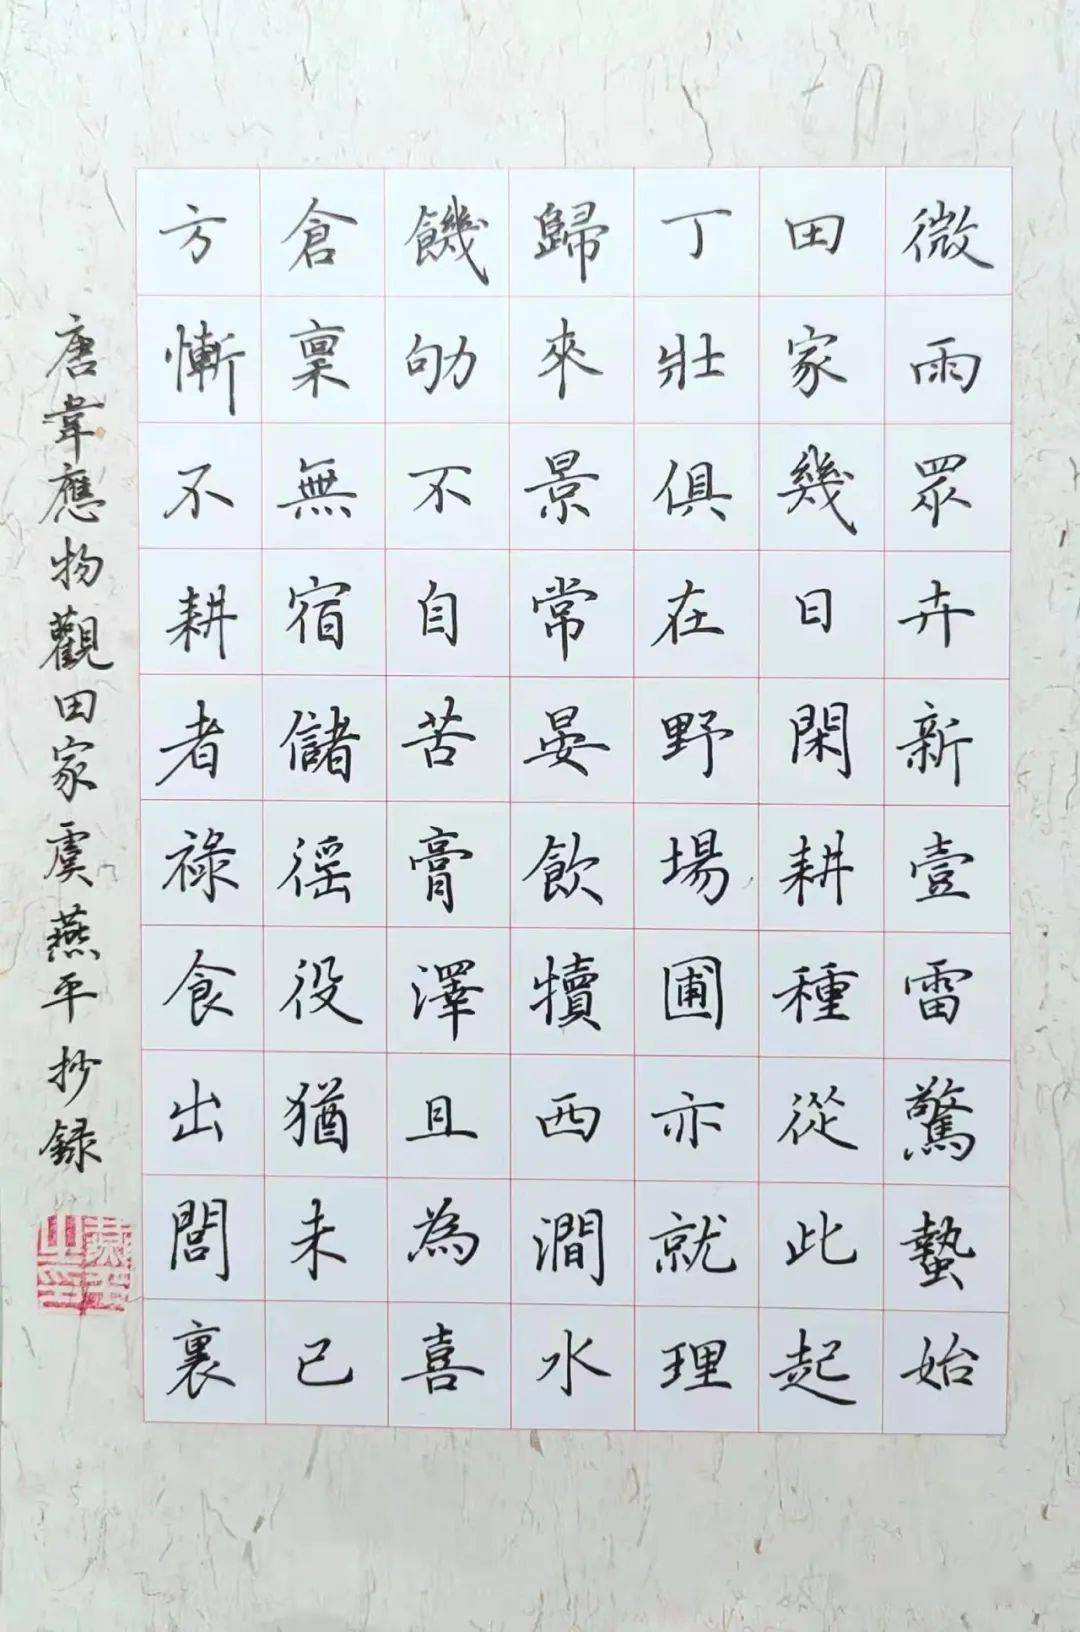 微雨眾卉新壹雷驚蟄始
田家幾日閑耕種從此起
丁壯俱在野場圃亦就理
歸來景常晏飲犢西澗水
饑劬不自苦膏澤且為喜
倉稟無宿儲徭役猶未已
方慚不耕者祿食出閭裏
唐韋應物觀田家虞燕平抄録